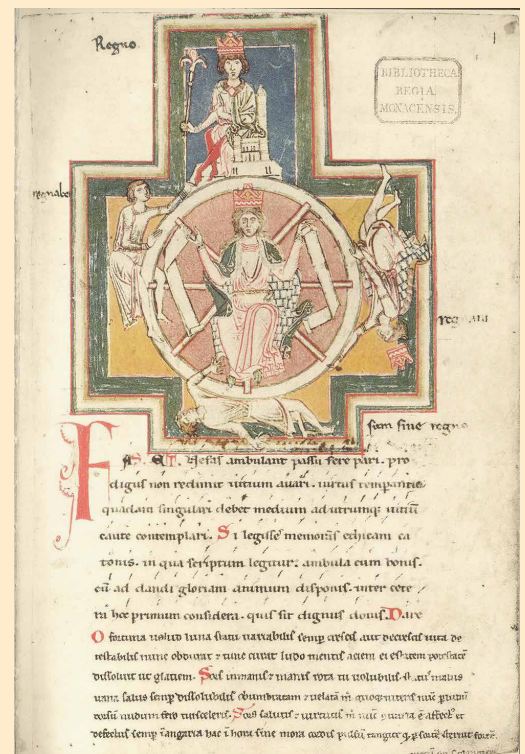 Regno
1
BIBLIOTHECA
REGIA
MONACENSIS.
regnabo
regnaui
sum sine regno
FAS ET Nefas ambulant passu fere pari. pro
digus non redimit uitium auari. uirtus temperantie
quadam singulari debet medium ad utrumque uitium
caute contemplari. Si legisse memoras ethicam ca
tonis. in qua scriptum legitur. ambula cum bonis.
cum ad dandi gloriam animum disponis. inter cete
ra hoc primum considera. quis sit dignus donis. Dare
O fortuna uelud luna statu uariabilis semper crescis aut decrescis uita de
testabilis nunc obdurat et tunc curat ludo mentis aciem egestatem potestatem
dissoluit ut glaciem. Sors inmanis et inanis rota tu uolubilis status malus
uana salus semper dissolubilis obumbratam et uelatam michi quoque niteris nunc per ludum
dorsum nudum fero tui sceleris. Sors salutis et uirtutis michi nunc contraria est affectus et
defectus semper in angaria hac in hora sine mora corde pulsum tangite